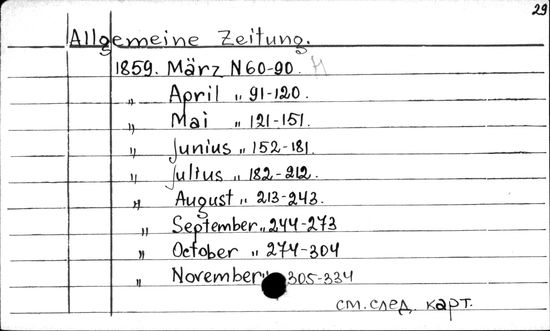 29
Allgemeine Zeitung.
1859. März N 60-90. H
„ April „ 91-120.
„ Mai „ 121-151.
„ Junius „ 152-181.
„ Julius „ 182-212.
„ August „ 213-243.
„ September „ 244-273
„ October „ 274-304
„ November „ 305-334
см. след. карт.